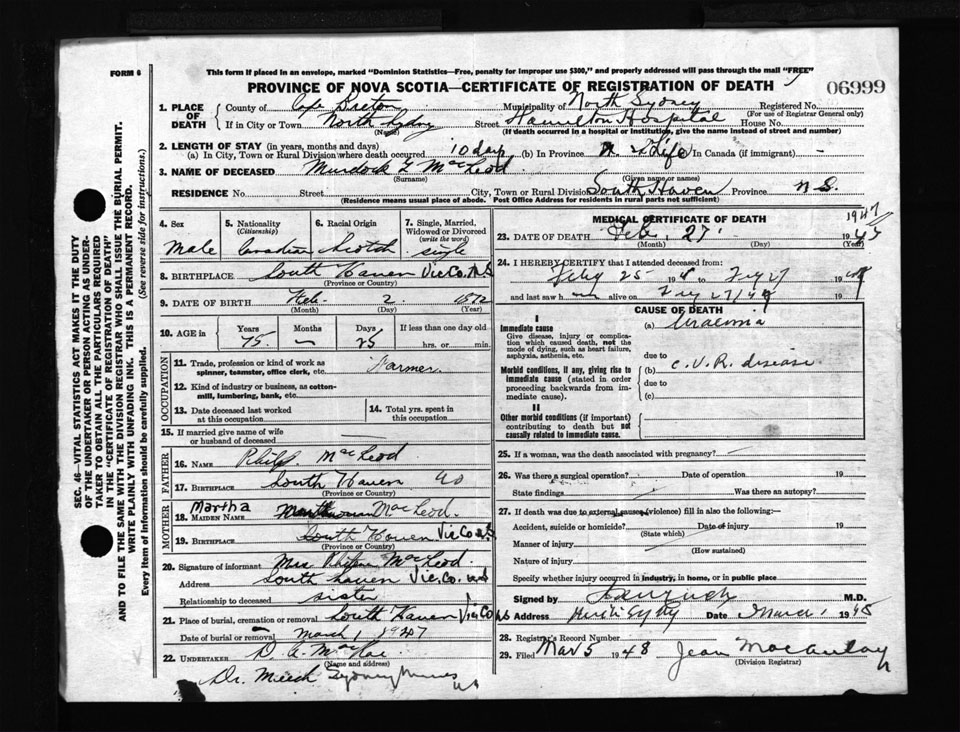 FORM 6
This form if placed in an envelope, marked "Dominion Statistics—Free, penalty for improper use $300," and properly addressed will pass through the mail "FREE"
PROVINCE OF NOVA SCOTIA—CERTIFICATE OF REGISTRATION OF DEATH
06999
1. PLACE OF DEATH
County of Cape Breton Municipality of North Sydney Registered No.
(For use of Registrar General only)
If in City or Town North Sydney Street Hamilton Hospital House No.
(Name) (If death occurred in a hospital or institution, give the name instead of street and number)
2. LENGTH OF STAY (in years, months and days)
(a) In City, Town or Rural Division where death occurred 10 days (b) In Province Life In Canada (if immigrant) -
3. NAME OF DECEASED Murdock MacLeod
(Surname) (Given name or names)
RESIDENCE No. Street City, Town or Rural Division South Haven Province N S.
(Residence means usual place of abode. Post Office Address for residents in rural parts not sufficient)
4. Sex
Male
5. Nationality
(Citizenship)
Canadian
6. Racial Origin
Scotch
7. Single, Married, Widowed or Divorced
(write the word)
single
8. BIRTHPLACE South Haven Vic Co. N.S
(Province or Country)
9. DATE OF BIRTH Feb. 2. 1872
(Month) (Day) (Year)
10. AGE in
Years Months Days If less than one day old
75. — 25 hrs. or min.
OCCUPATION
11. Trade, profession or kind of work as spinner, teamster, office clerk, etc. Farmer.
12. Kind of industry or business, as cotton-mill, lumbering, bank, etc.
13. Date deceased last worked at this occupation
14. Total yrs. spent in this occupation
15. If married give name of wife or husband of deceased —
FATHER
16. NAME Philip MacLeod
17. BIRTHPLACE South Haven
(Province or Country)
MOTHER
Martha
18. MAIDEN NAME MacLeod.
19. BIRTHPLACE South Haven Vic Co N.S
(Province or Country)
20. Signature of informant Mrs MacLeod.
Address South haven Vic. Co. N.S
Relationship to deceased sister
21. Place of burial, cremation or removal South Haven Vic Co N.S
Date of burial or removal March 1 1947
22. UNDERTAKER D. A. MacRae
(Name and address)
Dr. Meech Sydney Mines N S
MEDICAL CERTIFICATE OF DEATH
1947
23. DATE OF DEATH Feb. 27 19
(Month) (Day) (Year)
24. I HEREBY CERTIFY that I attended deceased from:
Feby 25 to Feby 27 19
and last saw h alive on Feby 27 19
CAUSE OF DEATH
I
Immediate cause
Give disease, injury or complication which caused death, not the mode of dying, such as heart failure, asphyxia, asthenia, etc.
(a) Uraemia
due to
Morbid conditions, if any, giving rise to immediate cause (stated in order proceeding backwards from immediate cause).
(b) C.V.R. disease
due to
(c)
II
Other morbid conditions (if important) contributing to death but not causally related to immediate cause.
25. If a woman, was the death associated with pregnancy?
26. Was there a surgical operation? Date of operation 19
State findings Was there an autopsy?
27. If death was due to external causes (violence) fill in also the following:—
Accident, suicide or homicide? Date of injury 19
(State which)
Manner of injury
(How sustained)
Nature of injury
Specify whether injury occurred in industry, in home, or in public place
Signed by M.D.
Address Date March 1 1948
28. Registrar's Record Number
29. Filed Mar 5 1948 Jean MacAulay
(Division Registrar)
SEC. 46—VITAL STATISTICS ACT MAKES IT THE DUTY
OF THE UNDERTAKER OR PERSON ACTING AS UNDERTAKER TO OBTAIN ALL THE PARTICULARS REQUIRED
IN THE "CERTIFICATE OF REGISTRATION OF DEATH"
AND TO FILE THE SAME WITH THE DIVISION REGISTRAR WHO SHALL ISSUE THE BURIAL PERMIT.
WRITE PLAINLY WITH UNFADING INK. THIS IS A PERMANENT RECORD.
Every item of information should be carefully supplied. (See reverse side for instructions.)